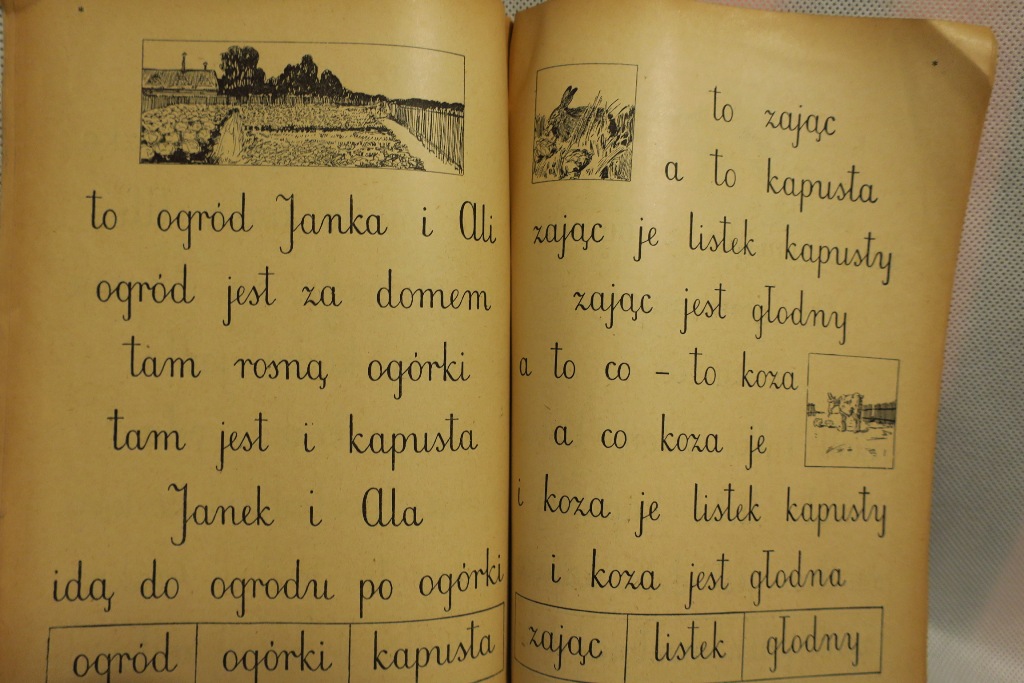 to ogród Janka i Ali
ogród jest za domem
tam rosną ogórki
tam jest i kapusta
Janek i Ala
idą do ogrodu po ogórki
ogród ogórki kapusta
to zając
a to kapusta
zając je listek kapusty
zając jest głodny
a to co – to koza
a co koza je
i koza je listek kapusty
i koza jest głodna
zając listek głodny